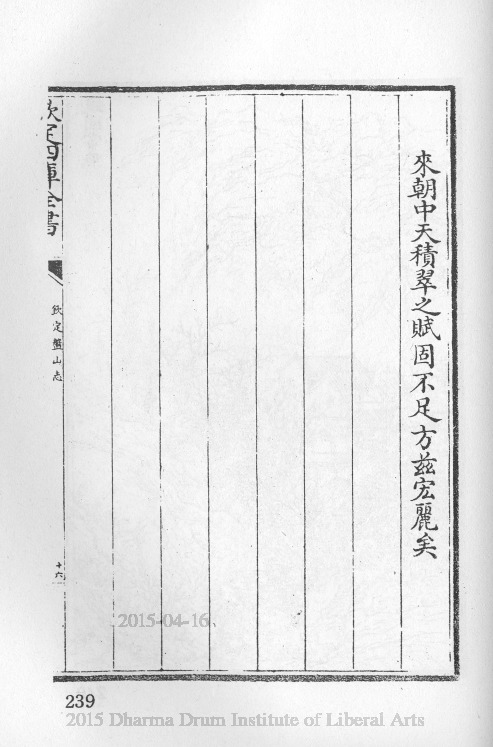 來朝中天積翠之賦固不足方茲宏麗矣
欽定四庫全書
欽定盤山志
十六
2015-04-16
239
2015 Dharma Drum Institute of Liberal Arts